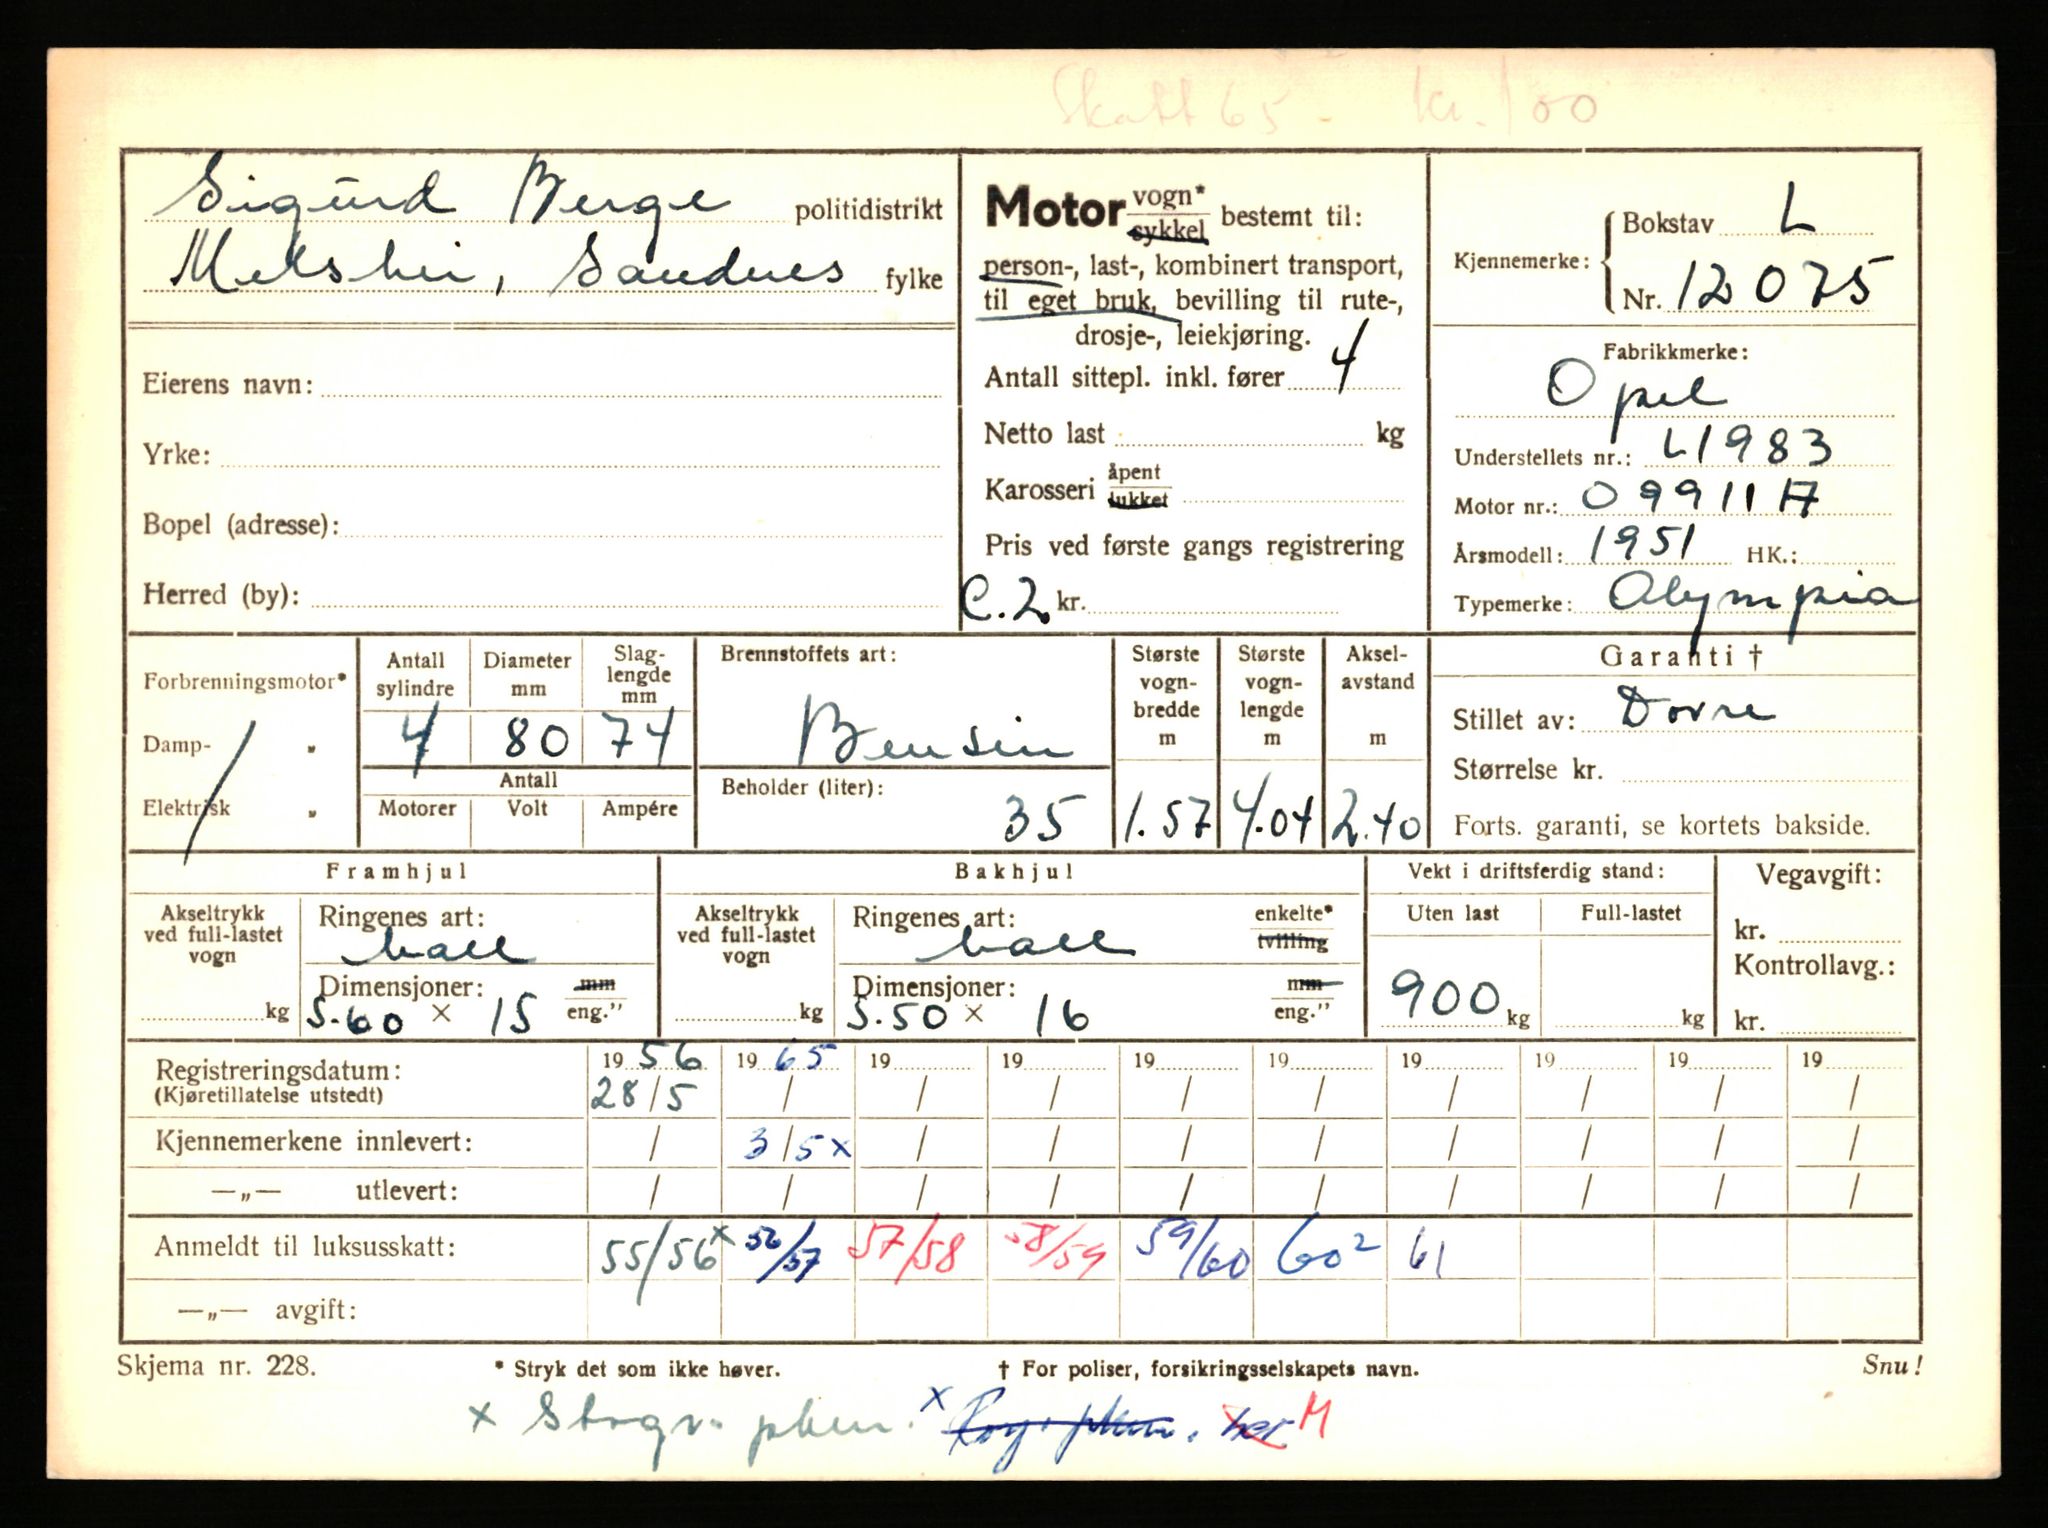 Skatt 65 - kr. 100
Sigurd Berge politidistrikt
Melshei, Sandnes fylke
Eierens navn:
Yrke:
Bopel (adresse):
Herred (by):
Motor vogn* sykkel bestemt til:
person-, last-, kombinert transport,
til eget bruk, bevilling til rute-,
drosje-, leiekjøring.
Antall sittepl. inkl. fører 4
Netto last kg
Karosseri åpent lukket
Pris ved første gangs registrering
C.2. kr.
Kjennemerke: Bokstav L
Nr. 12075
Fabrikkmerke:
Opel
Understellets nr.: L1983
Motor nr.: 0991117
Årsmodell: 1951 HK.:
Typemerke: Olympia
Forbrenningsmotor*
Damp- „
Elektrisk „
Antall sylindre 4
Diameter mm 80
Slag-lengde mm 74
Antall
Motorer Volt Ampére
Brennstoffets art:
Bensin
Beholder (liter):
35
Største vogn-bredde m 1.57
Største vogn-lengde m 4.04
Aksel-avstand m 2.40
Garanti †
Stillet av: Dovre
Størrelse kr.
Forts. garanti, se kortets bakside.
Framhjul
Akseltrykk ved full-lastet vogn kg
Ringenes art:
Dimensjoner: mm
5.60 × 15 eng."
Bakhjul
Akseltrykk ved full-lastet vogn kg
Ringenes art: enkelte* tvilling
Dimensjoner: mm
5.50 × 16 eng."
Vekt i driftsferdig stand:
Uten last Full-lastet
900 kg kg
Vegavgift:
kr.
Kontrollavg.:
kr.
Registreringsdatum: 19 56 19 65 19 19 19 19 19 19 19 19
(Kjøretillatelse utstedt) 28/5 / / / / / / / / /
Kjennemerkene innlevert: / 3/5 x / / / / / / / /
—„— utlevert: / / / / / / / / / /
Anmeldt til luksusskatt: 55/56 x 56/57 57/58 58/59 59/60 60² 61
—„— avgift:
Skjema nr. 228. * Stryk det som ikke høver. † For poliser, forsikringsselskapets navn. Snu!
x
x
M